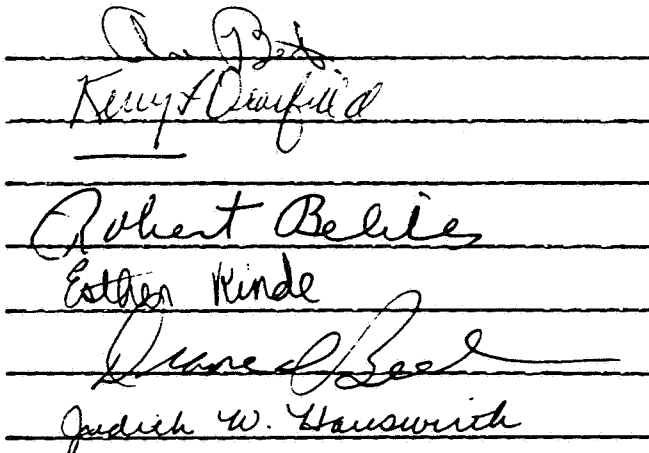 Kerry L Dearfield
Robert Beliles
Esther Rinde
Diane Beal
Judith W. Hauswirth